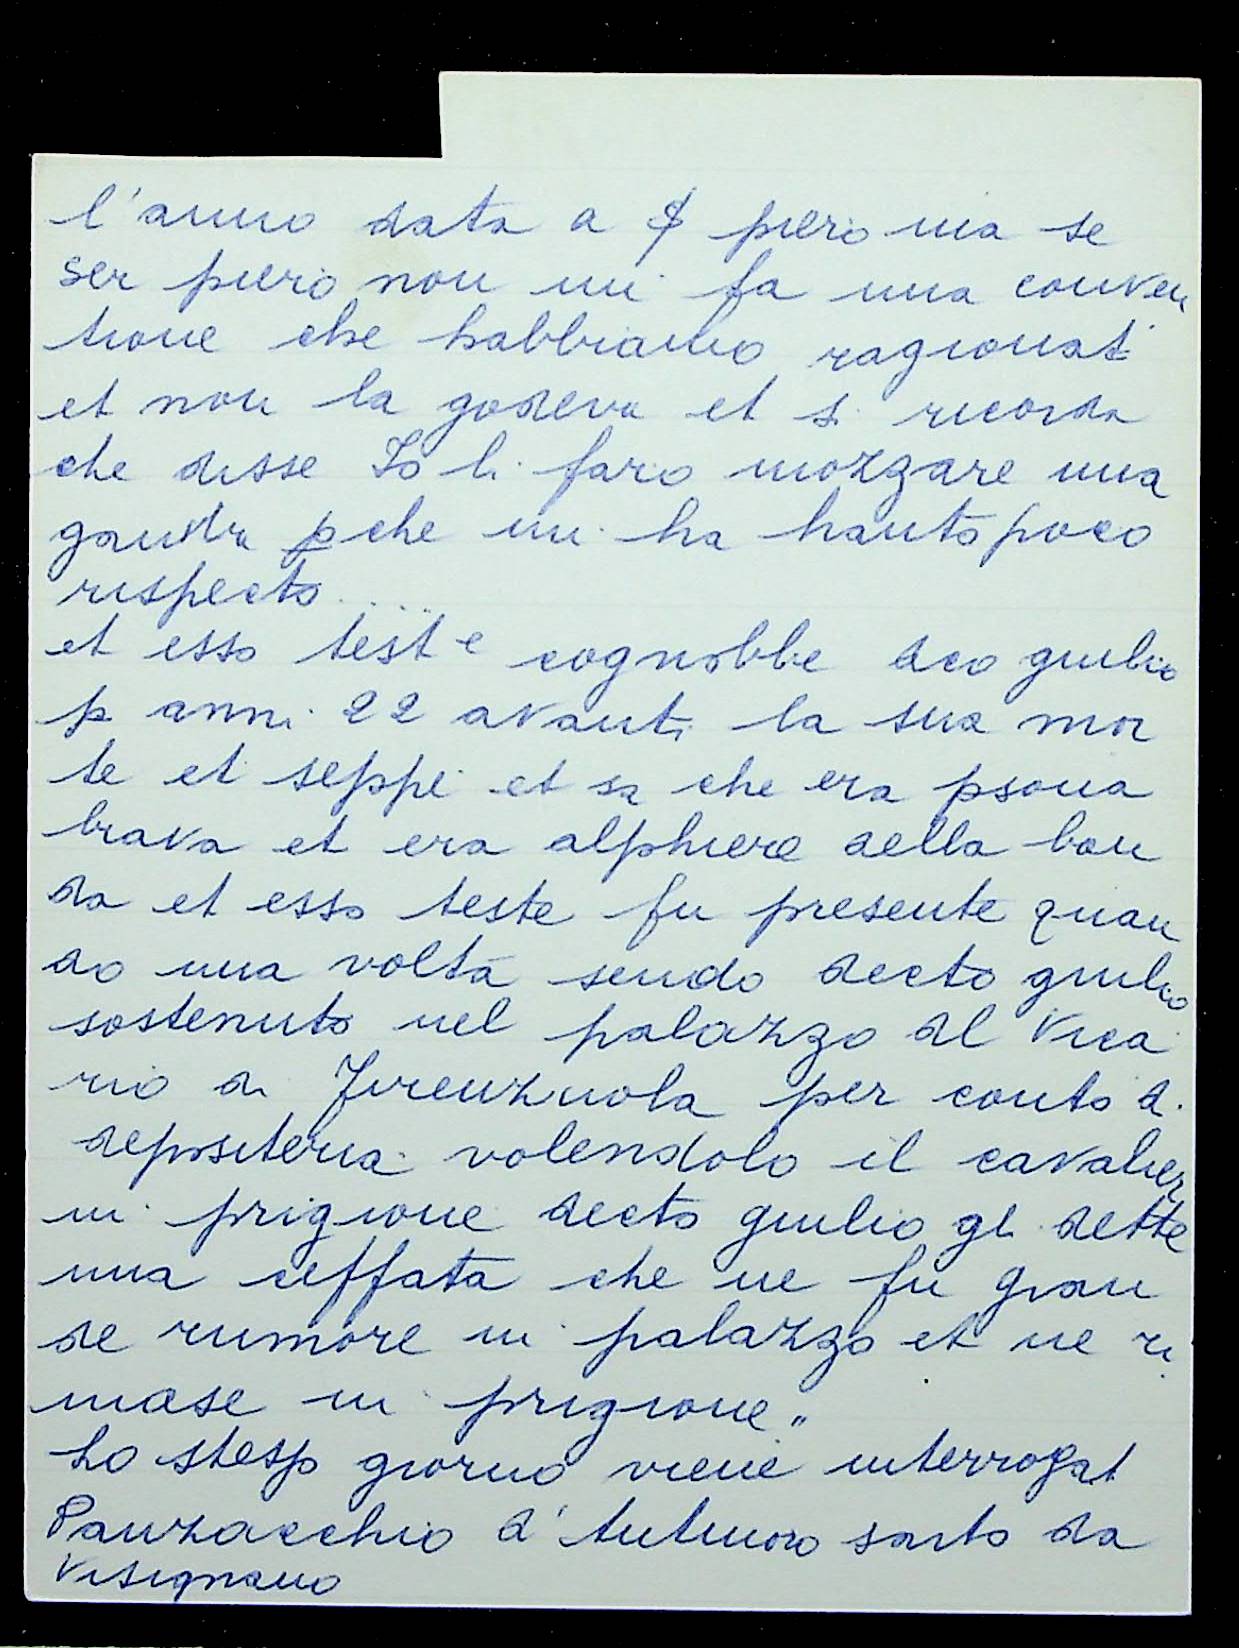 l'anno data a $ piero ma se
ser piero non mi fa una conven
tione che habbiamo ragionat
et non la godeva et si ricorda
che disse Io li faro mozzare una
gamba pche mi ha hauto poco
rispecto....
et esso teste cognobbe dco giulio
p anni 22 avanti la sua mor
te et seppe et sa che era psona
brava et era alphiere della ban
da et esso teste fu presente quan
do una volta sendo decto giulio
sostenuto nel palazzo del Vica
rio di Firenzuola per conto di
depositeria volendolo il cavalier
in prigione decto giulio gli dette
una ceffata che ne fu gran
de rumore in palazzo et ne ri
mase in prigione"
Lo stesso giorno viene interrogat
Panzacchio d' sarto da
Visignano